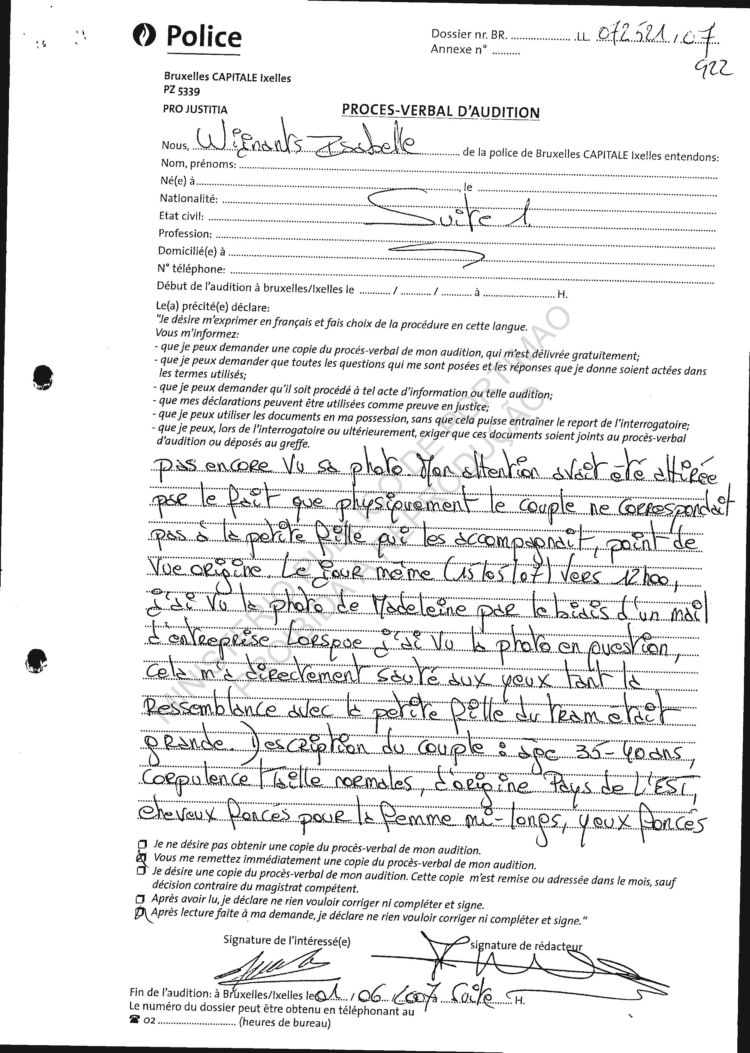 Police
Dossier nr. BR. ........................ LL. 072521/07
Annexe n° ..........
922
Bruxelles CAPITALE Ixelles
PZ 5339
PRO JUSTITIA
PROCES-VERBAL D'AUDITION
Nous, Wijnants Isabelle de la police de Bruxelles CAPITALE Ixelles entendons:
Nom, prénoms:
Né(e) à , le
Nationalité:
Suite 1.
Etat civil:
Profession:
Domicilié(e) à
N° téléphone:
Début de l'audition à bruxelles/Ixelles le ........... / ........... / ........... à ........................ H.
Le(a) précité(e) déclare:
"Je désire m'exprimer en français et fais choix de la procédure en cette langue.
Vous m'informez:
- que je peux demander une copie du procés-verbal de mon audition, qui m'est délivrée gratuitement;
- que je peux demander que toutes les questions qui me sont posées et les réponses que je donne soient actées dans
les termes utilisés;
- que je peux demander qu'il soit procédé à tel acte d'information ou telle audition;
- que mes déclarations peuvent être utilisées comme preuve en justice;
- que je peux utiliser les documents en ma possession, sans que cela puisse entraîner le report de l'interrogatoire;
- que je peux, lors de l'interrogatoire ou ultérieurement, exiger que ces documents soient joints au procès-verbal
d'audition ou déposés au greffe.
pas encore vu sa photo Mon attention avait été attirée
par le fait que physiquement le couple ne correspondait
pas à la petite fille qui les accompagnait, point de
vue origine. Le jour même (15/05/07) vers 12h00,
j'ai vu la photo de Madeleine par le biais d'un mail
d'entreprise Lorsque j'ai vu la photo en question,
cela m'a directement sauté aux yeux tant la
ressemblance avec la petite fille du tram était
grande. Description du couple : age 35-40 ans,
corpulence taille normales, d'origine Pays de L'EST,
cheveux foncés pour la femme mi-longs, yeux foncés
MINISTERIO PUBLICO DE PORTIMAO
PROIBIDA A REPRODUÇÃO
Je ne désire pas obtenir une copie du procès-verbal de mon audition.
Vous me remettez immédiatement une copie du procès-verbal de mon audition.
Je désire une copie du procès-verbal de mon audition. Cette copie m'est remise ou adressée dans le mois, sauf
décision contraire du magistrat compétent.
Après avoir lu, je déclare ne rien vouloir corriger ni compléter et signe.
Après lecture faite à ma demande, je déclare ne rien vouloir corriger ni compléter et signe."
Signature de l'intéressé(e) signature de rédacteur
Fin de l'audition: à Bruxelles/Ixelles le 01 / 06 / 2007 Suite H.
Le numéro du dossier peut être obtenu en téléphonant au
☎ 02 ........................ (heures de bureau)